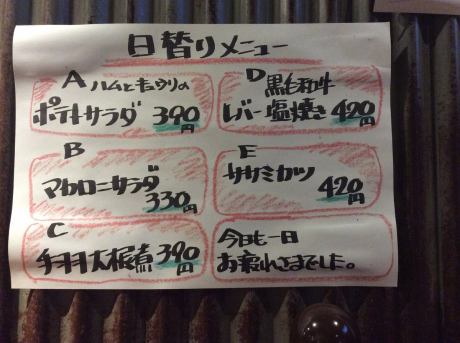 日替りメニュー
A ハムときゅうりの
ポテトサラダ 390円
B
マカロニサラダ
330円
C
手羽大根煮 390円
D 黒毛和牛
レバー塩焼き 420円
E
ササミカツ
420円
今日も一日
お疲れさまでした。